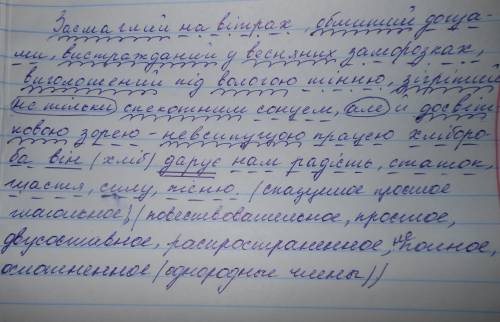 Засмаглий на вітрах, обмитий доща-
ми, вистражданий у весняних заморозках,
виголошений під вологою тінню, зігрітий
не тільки спекотним сонцем, але й досвіт
ковою зорею - невсипущою працею хлібoро-
ба він (хліб) дарує нам радість, статок,
щастя, силу, пісню. (спаддемое простое
глагольное) (повествовательное, простое,
двусоставное, распространенное, неполное,
осложненное (однородные члены))